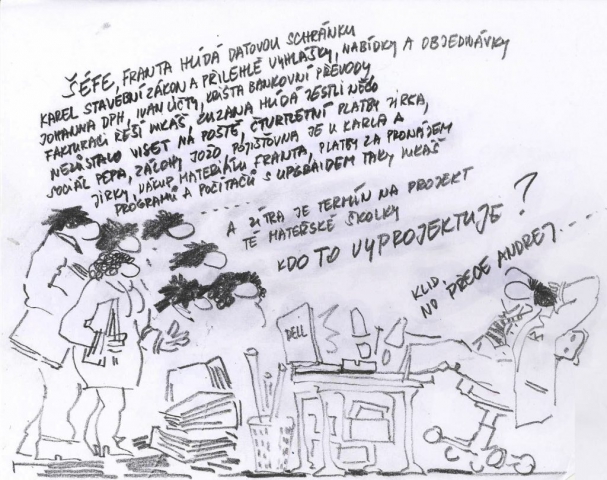 ŠÉFE, FRANTA HLÍDÁ DATOVOU SCHRÁNKU
KAREL STAVEBNÍ ZÁKON A PŘILEHLÉ VYHLÁŠKY, NABÍDKY A OBJEDNÁVKY
JOHANNA DPH, IVAN ÚČTY, KRISTA BANKOVNÍ PŘEVODY
FAKTURACI ŘEŠÍ LUKÁŠ ZUZANA HLÍDÁ JESTLI NĚCO
NEZŮSTALO VISET NA POŠTĚ, ČTVRTLETNÍ PLATBY JIRKA,
SOCIÁL PEPA, ZÁLOHY JOŽO POJIŠŤOVNA JE U KARLA A
JIRKY, NÁKUP MATERIÁLU FRANTA, PLATBY ZA PRONÁJEM
PROGRAMŮ A POČÍTAČŮ S UPGRAIDEM TAKY LUKÁŠ
A ZÍTRA JE TERMÍN NA PROJEKT
TÉ MATEŘSKÉ ŠKOLKY
KDO TO VYPROJEKTUJE ?
KLID,
NO PŘECE ANDREJ...
DELL